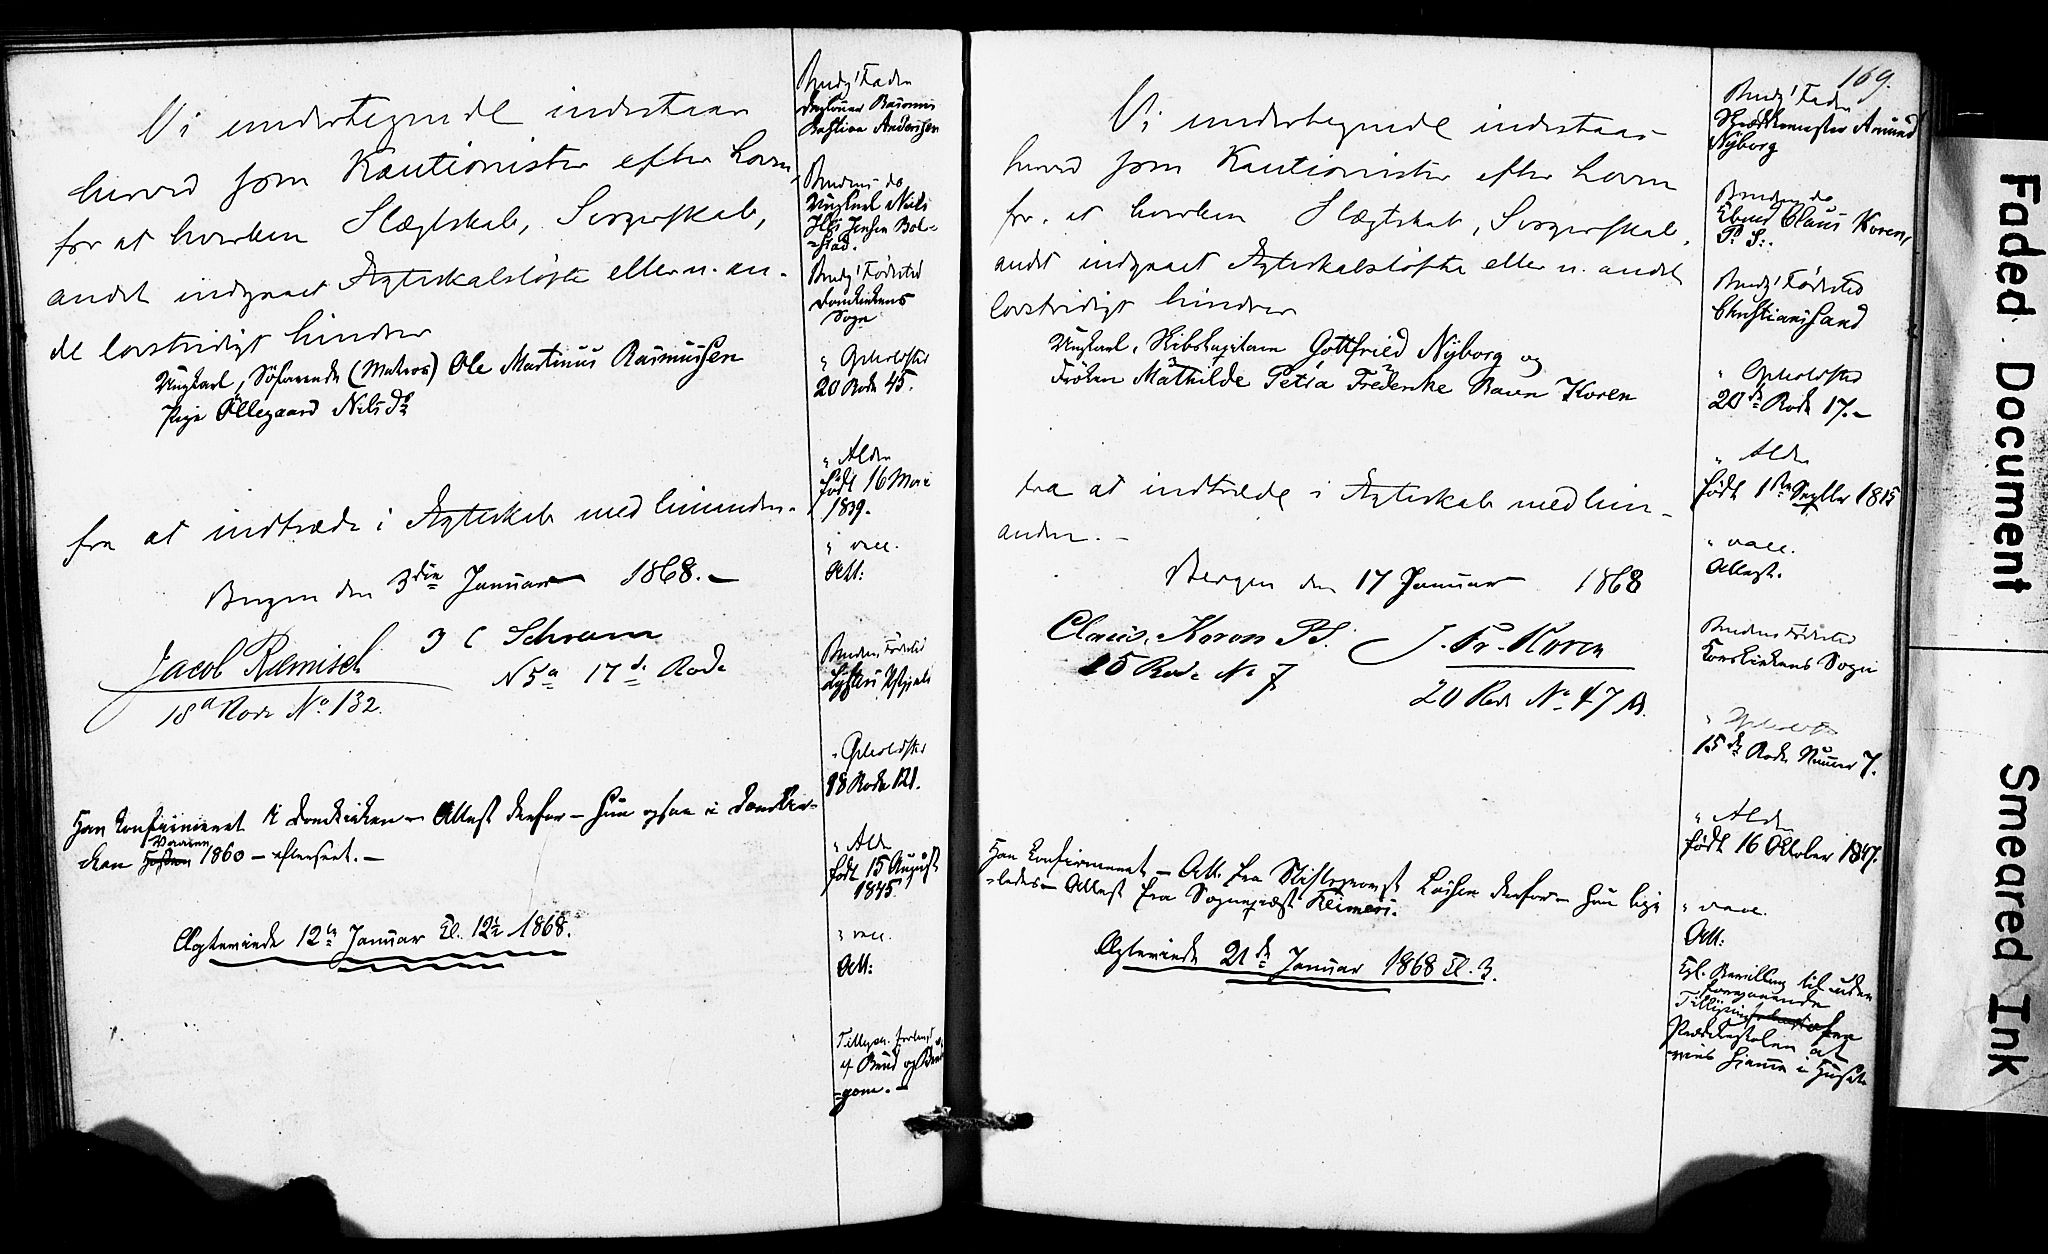 Vi undertegnede indestaar
herved som Kautionister efter Loven,
for at hverken Slægtskab, Svogerskab,
andet indgaaet Ægteskabsløfte eller n. an-
det lovstridigt hindrer
Ungkarl, Søfarende (Matros) Ole Martinus Rasmussen
Pige Øllegaard Nilsdr
fra at indtræde i Ægteskab med hinanden.
Bergen den 3die Januar 1868.-
Jacob Remisch J C Schram
18a Rode No 132. N 5a 17d. Rode
Han konfirmeret i Domkirken - Attest derfor - Hun ogsaa i Domkir-
Vaaren
ken Høsten 1860 - efterseet. -
Ægteviede 12te Januar Kl. 12½ 1868.
Brudg' Fader
Rasmus
Bastian Anderssen
Brudens do
Ungkarl Nils
Jensen Bol-
stad.
Brudg' Fødested
Domkirkens
Sogn
" Opholdsted
20 Rode 45.
" Alder
født 16 Mai
1839.
" vacc.
Att:
Brudens Fødested
" Opholdsted
18 Rode 121.
" Alder
født 15 August
1845.
" vacc.
Att:
Tillysn. forlangt
af Brud og Brud-
gom. -
169.
Vi undertegnede indestaar
herved som Kautionister efter Loven
for, at hverken Slægtskab, Svogerskab,
andet indgaaet Ægteskabsløfte eller n. andet
lovstridigt hindrer
Ungkarl, Skibskaptain Gottfried Nyborg og
Frøken Mathilde Petra Fredrikke Ravn Koren
fra at indtræde i Ægteskab med hin-
anden. -
Bergen den 17 Januar 1868
Claus Koren PS. J. Fr. Koren
15 Rode No 7 20 Rode No 47 B.
Han konfirmeret - Att. fra Stiftsprovst derfor - Hun lige
-ledes - Attest fra Sognepræst Reimers.
Ægteviede 21de Januar 1868 Kl. 3.
Brudg' Fader
Skræddermester Amund
Nyborg
Brudens do
Claus Koren,
P. S:.
Brudg' Fødested
Christianssand
" Opholdsted
20de Rode 17.-
" Alder
født 1ste Septbr 1815
" vacc.
Attest.
Brudens Fødested
Korskirkens Sogn
" Opholdsted
15de Rode Numer 7.
" Alder
født 16 Oktober 1847.
" vacc.
Att:
Kgl. Bevilling til uden
foregaaende
Tillysning fra
Prædikestolen at
vies hjemme i Huset
Faded Document
Smeared Ink